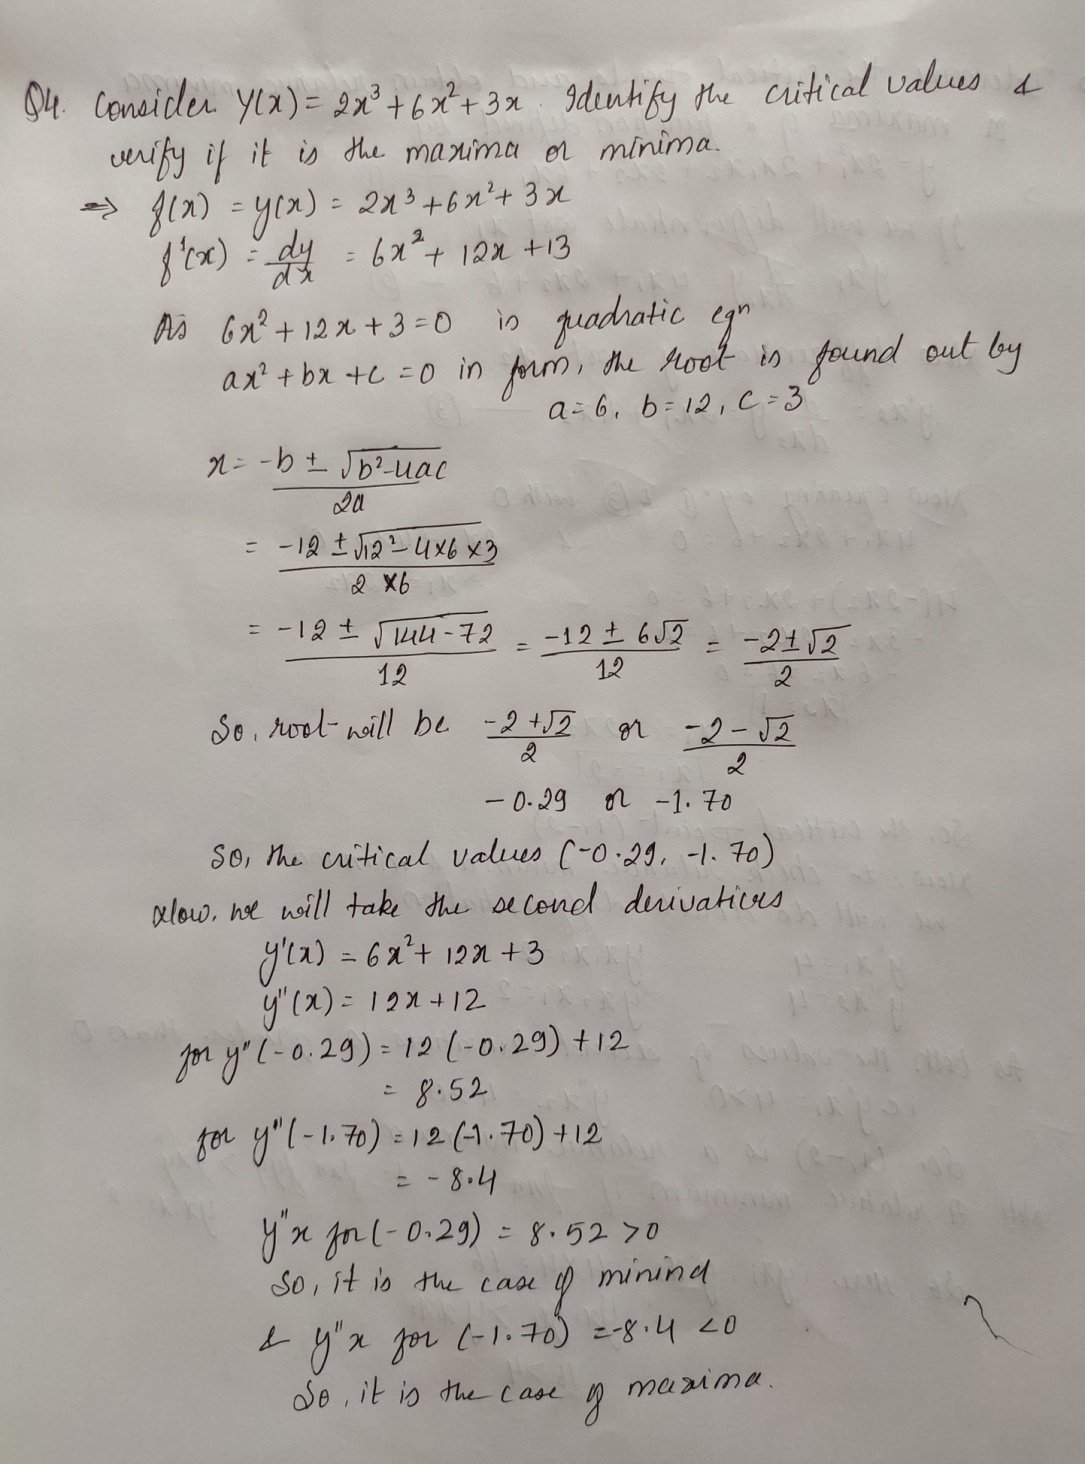 Q4. Consider y(x) = 2x³ + 6x² + 3x. Identify the critical values &
verify if it is the maxima or minima.
⇒ f(x) = y(x) = 2x³ + 6x² + 3x
f'(x) = dy/dx = 6x² + 12x + 13
As 6x² + 12x + 3 = 0 is quadratic eqn
ax² + bx + c = 0 in form, the root is found out by
a = 6, b = 12, c = 3
x = -b ± √b²-4ac / 2a
= -12 ± √12² - 4×6×3 / 2×6
= -12 ± √144-72 / 12 = -12 ± 6√2 / 12 = -2 ± √2 / 2
So, root will be -2+√2 / 2 or -2-√2 / 2
-0.29 or -1.70
So, the critical values (-0.29, -1.70)
Now, we will take the second derivatives
y'(x) = 6x² + 12x + 3
y"(x) = 12x + 12
for y"(-0.29) = 12(-0.29) + 12
= 8.52
for y"(-1.70) = 12(-1.70) + 12
= -8.4
y"x for (-0.29) = 8.52 > 0
So, it is the case of minima
& y"x for (-1.70) = -8.4 < 0
So, it is the case of maxima.